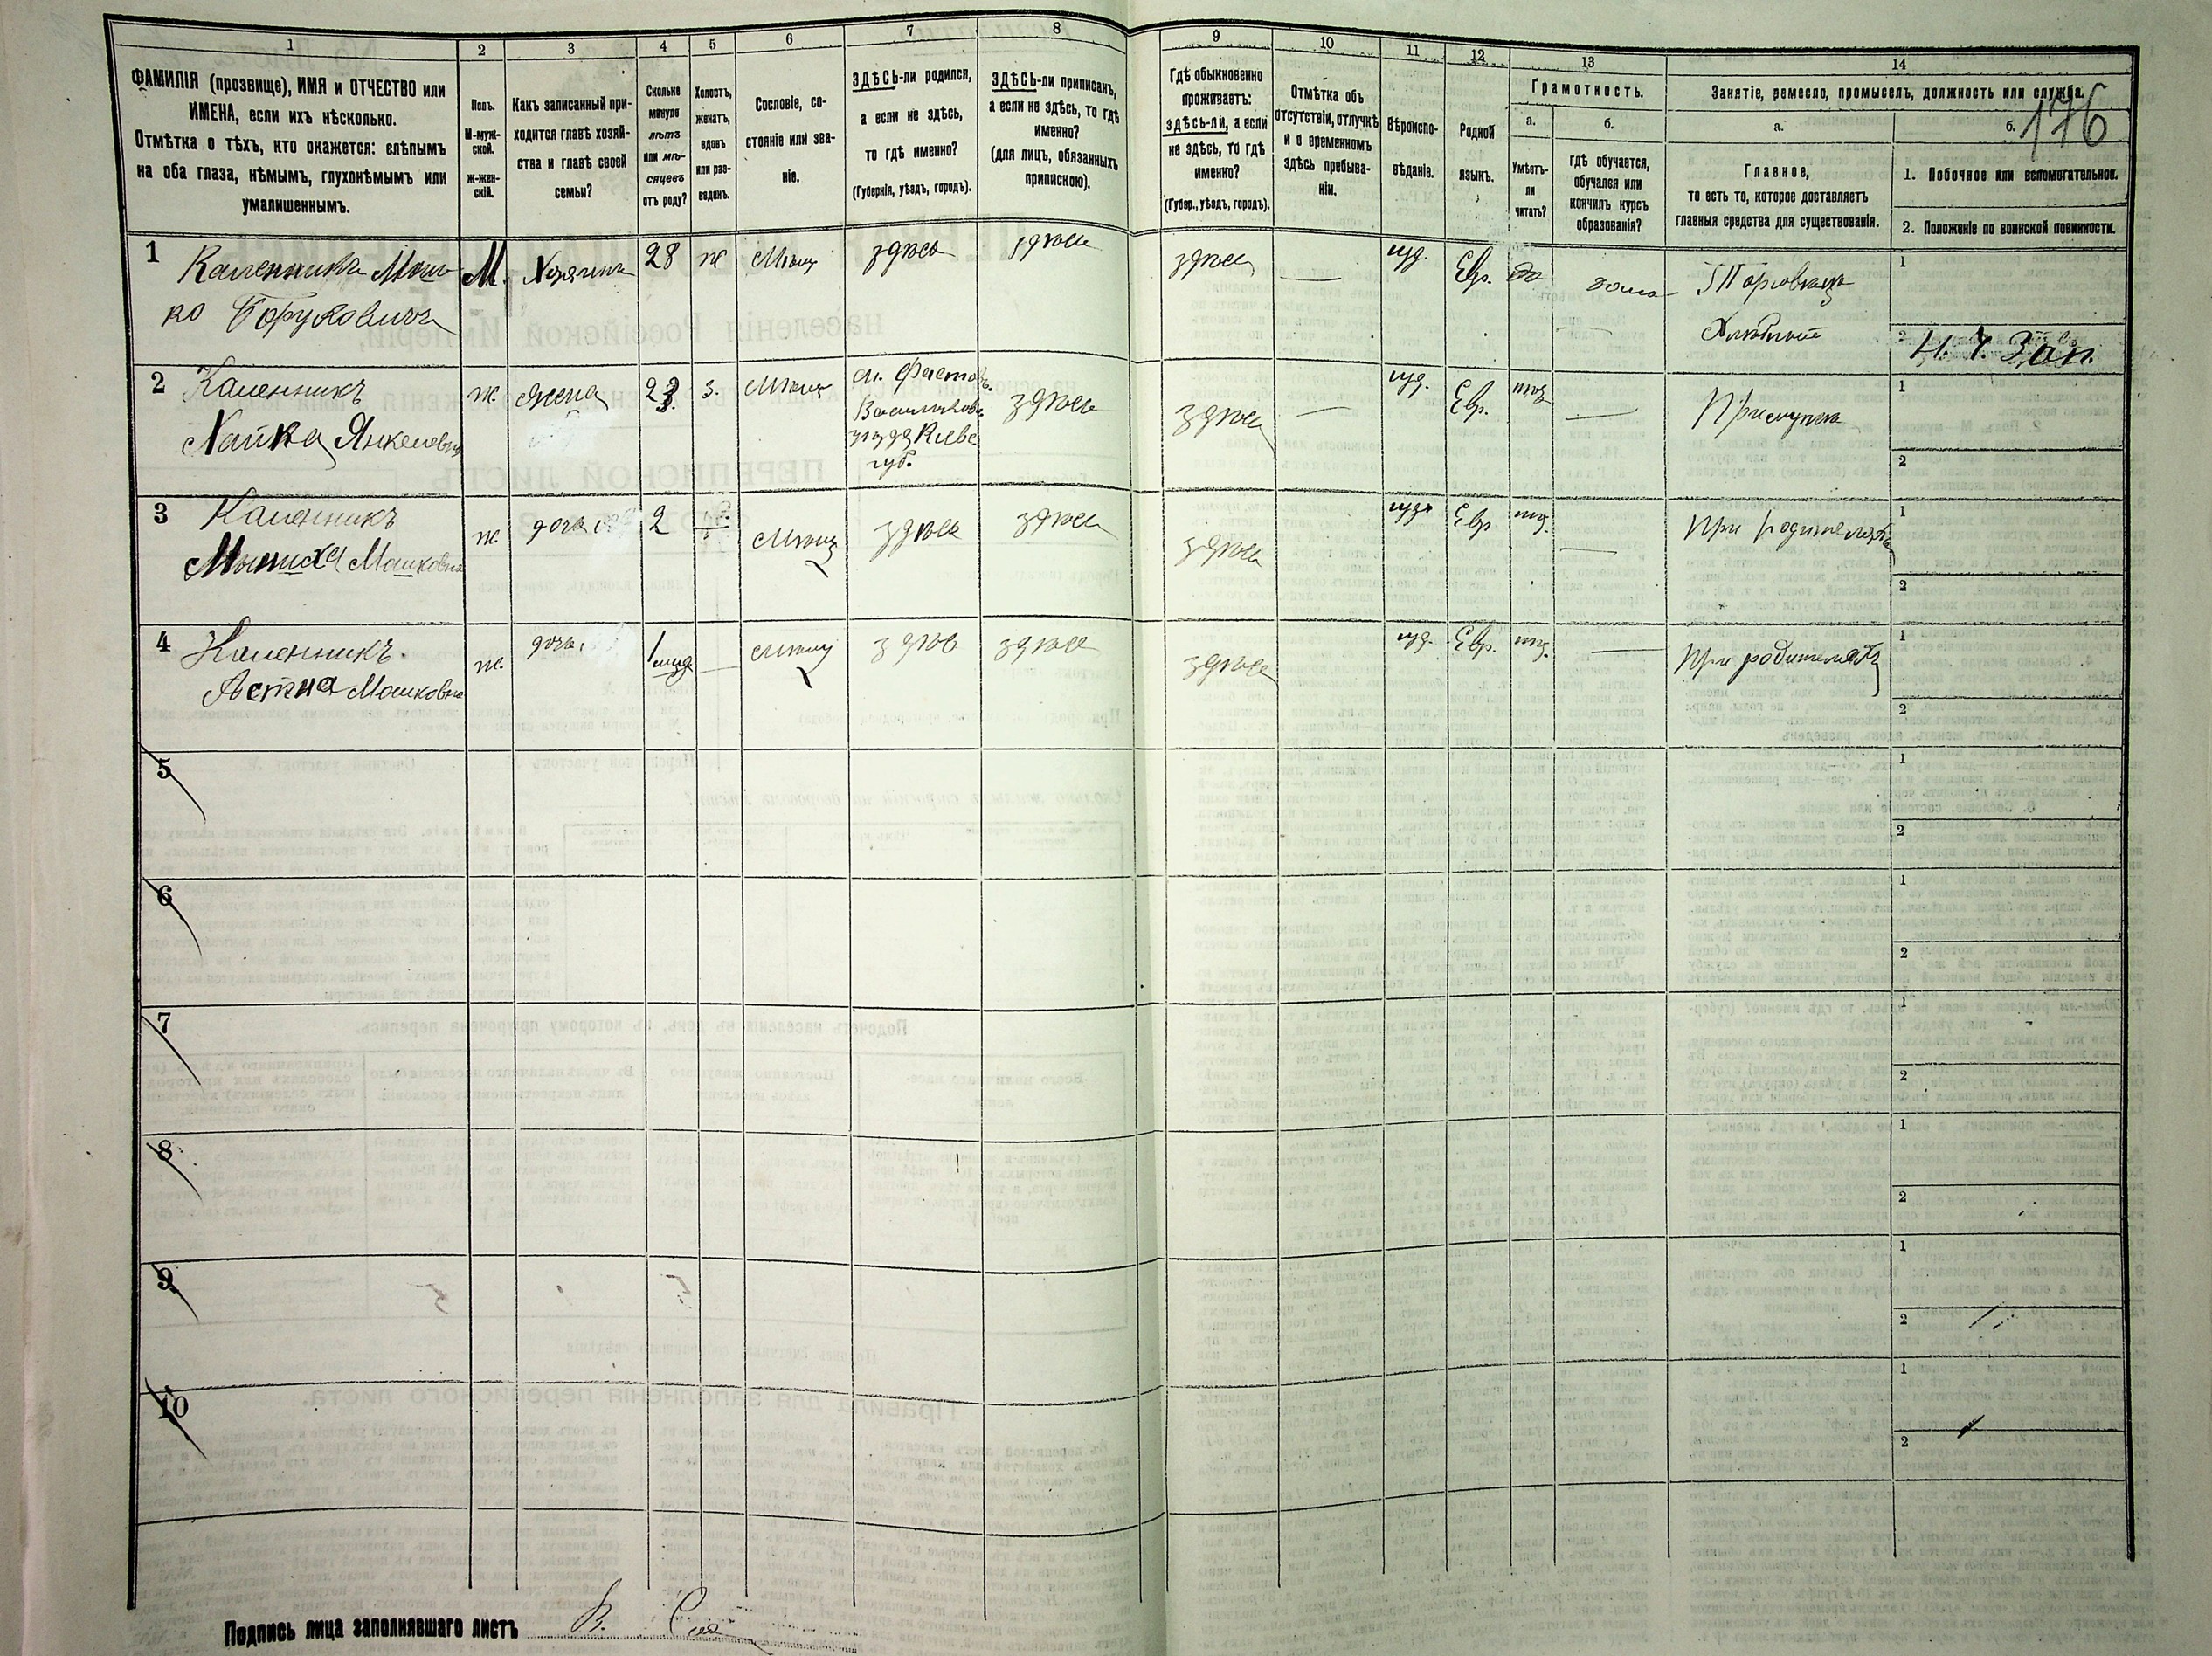 1 2 3 4 5 6 7 8 9 10 11 12 13 14
ФАМИЛІЯ (прозвище), ИМЯ и ОТЧЕСТВО или
ИМЕНА, если ихъ нѣсколько.
Отмѣтка о тѣхъ, кто окажется: слѣпымъ
на оба глаза, нѣмымъ, глухонѣмымъ или
умалишеннымъ.
Полъ.
М-муж-
ской.
Ж-жен-
скій.
Какъ записанный при-
ходится главѣ хозяй-
ства и главѣ своей
семьи?
Сколько
минуло
лѣтъ
или мѣ-
сяцевъ
отъ роду?
Холостъ,
женатъ,
вдовъ
или раз-
веденъ.
Сословіе, со-
стояніе или зва-
ніе.
ЗДѢСЬ-ли родился,
а если не здѣсь,
то гдѣ именно?
(Губернія, уѣздъ, городъ).
ЗДѢСЬ-ли приписанъ,
а если не здѣсь, то гдѣ
именно?
(для лицъ, обязанныхъ
припискою).
Гдѣ обыкновенно
проживаетъ:
здѣсь-ли, а если
не здѣсь, то гдѣ
именно?
(Губер., уѣздъ, городъ).
Отмѣтка объ
отсутствіи, отлучкѣ
и о временномъ
здѣсь пребыва-
ніи.
Вѣроиспо-
вѣданіе.
Родной
языкъ.
Грамотность.
а.
Умѣетъ-
ли
читать?
б.
гдѣ обучается,
обучался или
кончилъ курсъ
образованія?
Занятіе, ремесло, промыселъ, должность или служба.
а.
Главное,
то есть то, которое доставляетъ
главныя средства для существованія.
б. 176
1. Побочное или вспомогательное.
2. Положеніе по воинской повинности.
1 Каменникъ Мош- М. Хозяинъ 28 ж Мѣщ здѣсь здѣсь здѣсь іуд. Евр. да дома Торговецъ 1
ко Боруховичъ Хлѣбный 2
2 Каменникъ ж. Жена 3. Мѣщ м. Фастовъ здѣсь здѣсь іуд. Евр. Прислуга 1
Хайка Янкелевна Васильков. уѣзда Киев. губ. 2
3 Каменникъ ж. дочь 2 Мѣщ здѣсь здѣсь здѣсь іуд. Евр. При родителяхъ 1
Машковна 2
4 Каменникъ. ж. дочь 1 Мѣщ здѣсь здѣсь здѣсь іуд. Евр. при родителяхъ 1
Машковна 2
5 1
2
6 1
2
7 1
2
8 1
2
9 1
2
10 1
2
Подпись лица заполнявшаго листъ